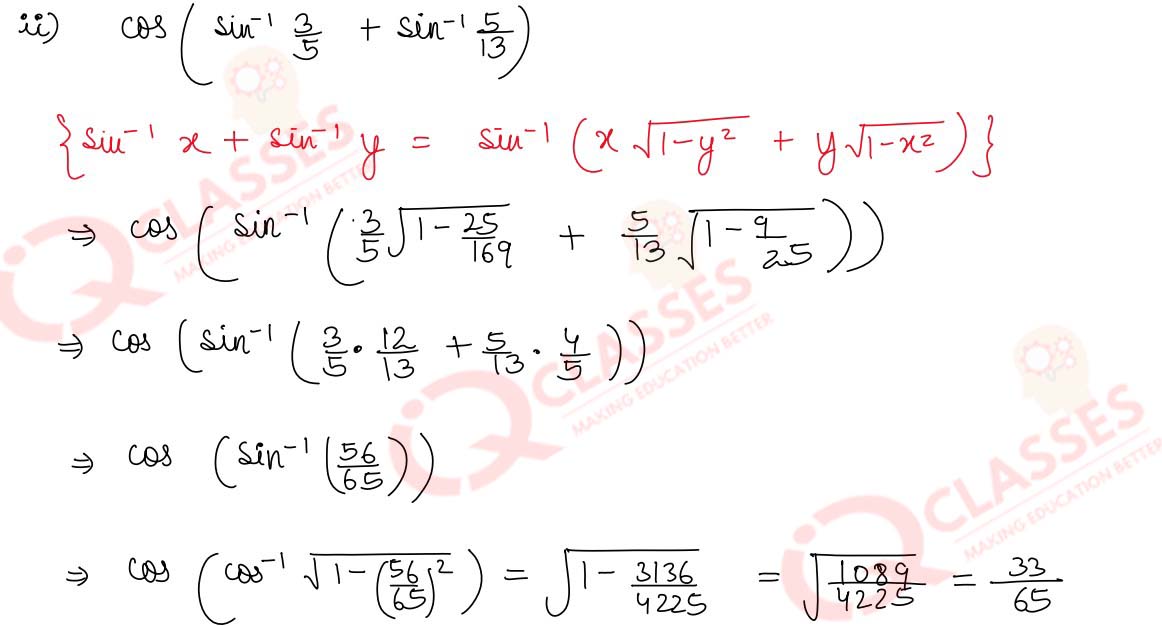 ii) cos ( sin⁻¹ 3/5 + sin⁻¹ 5/13 )
{ sin⁻¹ x + sin⁻¹ y = sin⁻¹ ( x √(1-y²) + y √(1-x²) ) }
⇒ cos ( sin⁻¹ ( 3/5 √(1 - 25/169) + 5/13 √(1 - 9/25) ) )
⇒ cos ( sin⁻¹ ( 3/5 · 12/13 + 5/13 · 4/5 ) )
⇒ cos ( sin⁻¹ ( 56/65 ) )
⇒ cos ( cos⁻¹ √(1 - (56/65)²) ) = √(1 - 3136/4225) = √(1089/4225) = 33/65
IQ CLASSES
MAKING EDUCATION BETTER
IQ CLASSES
MAKING EDUCATION BETTER
IQ CLASSES
MAKING EDUCATION BETTER